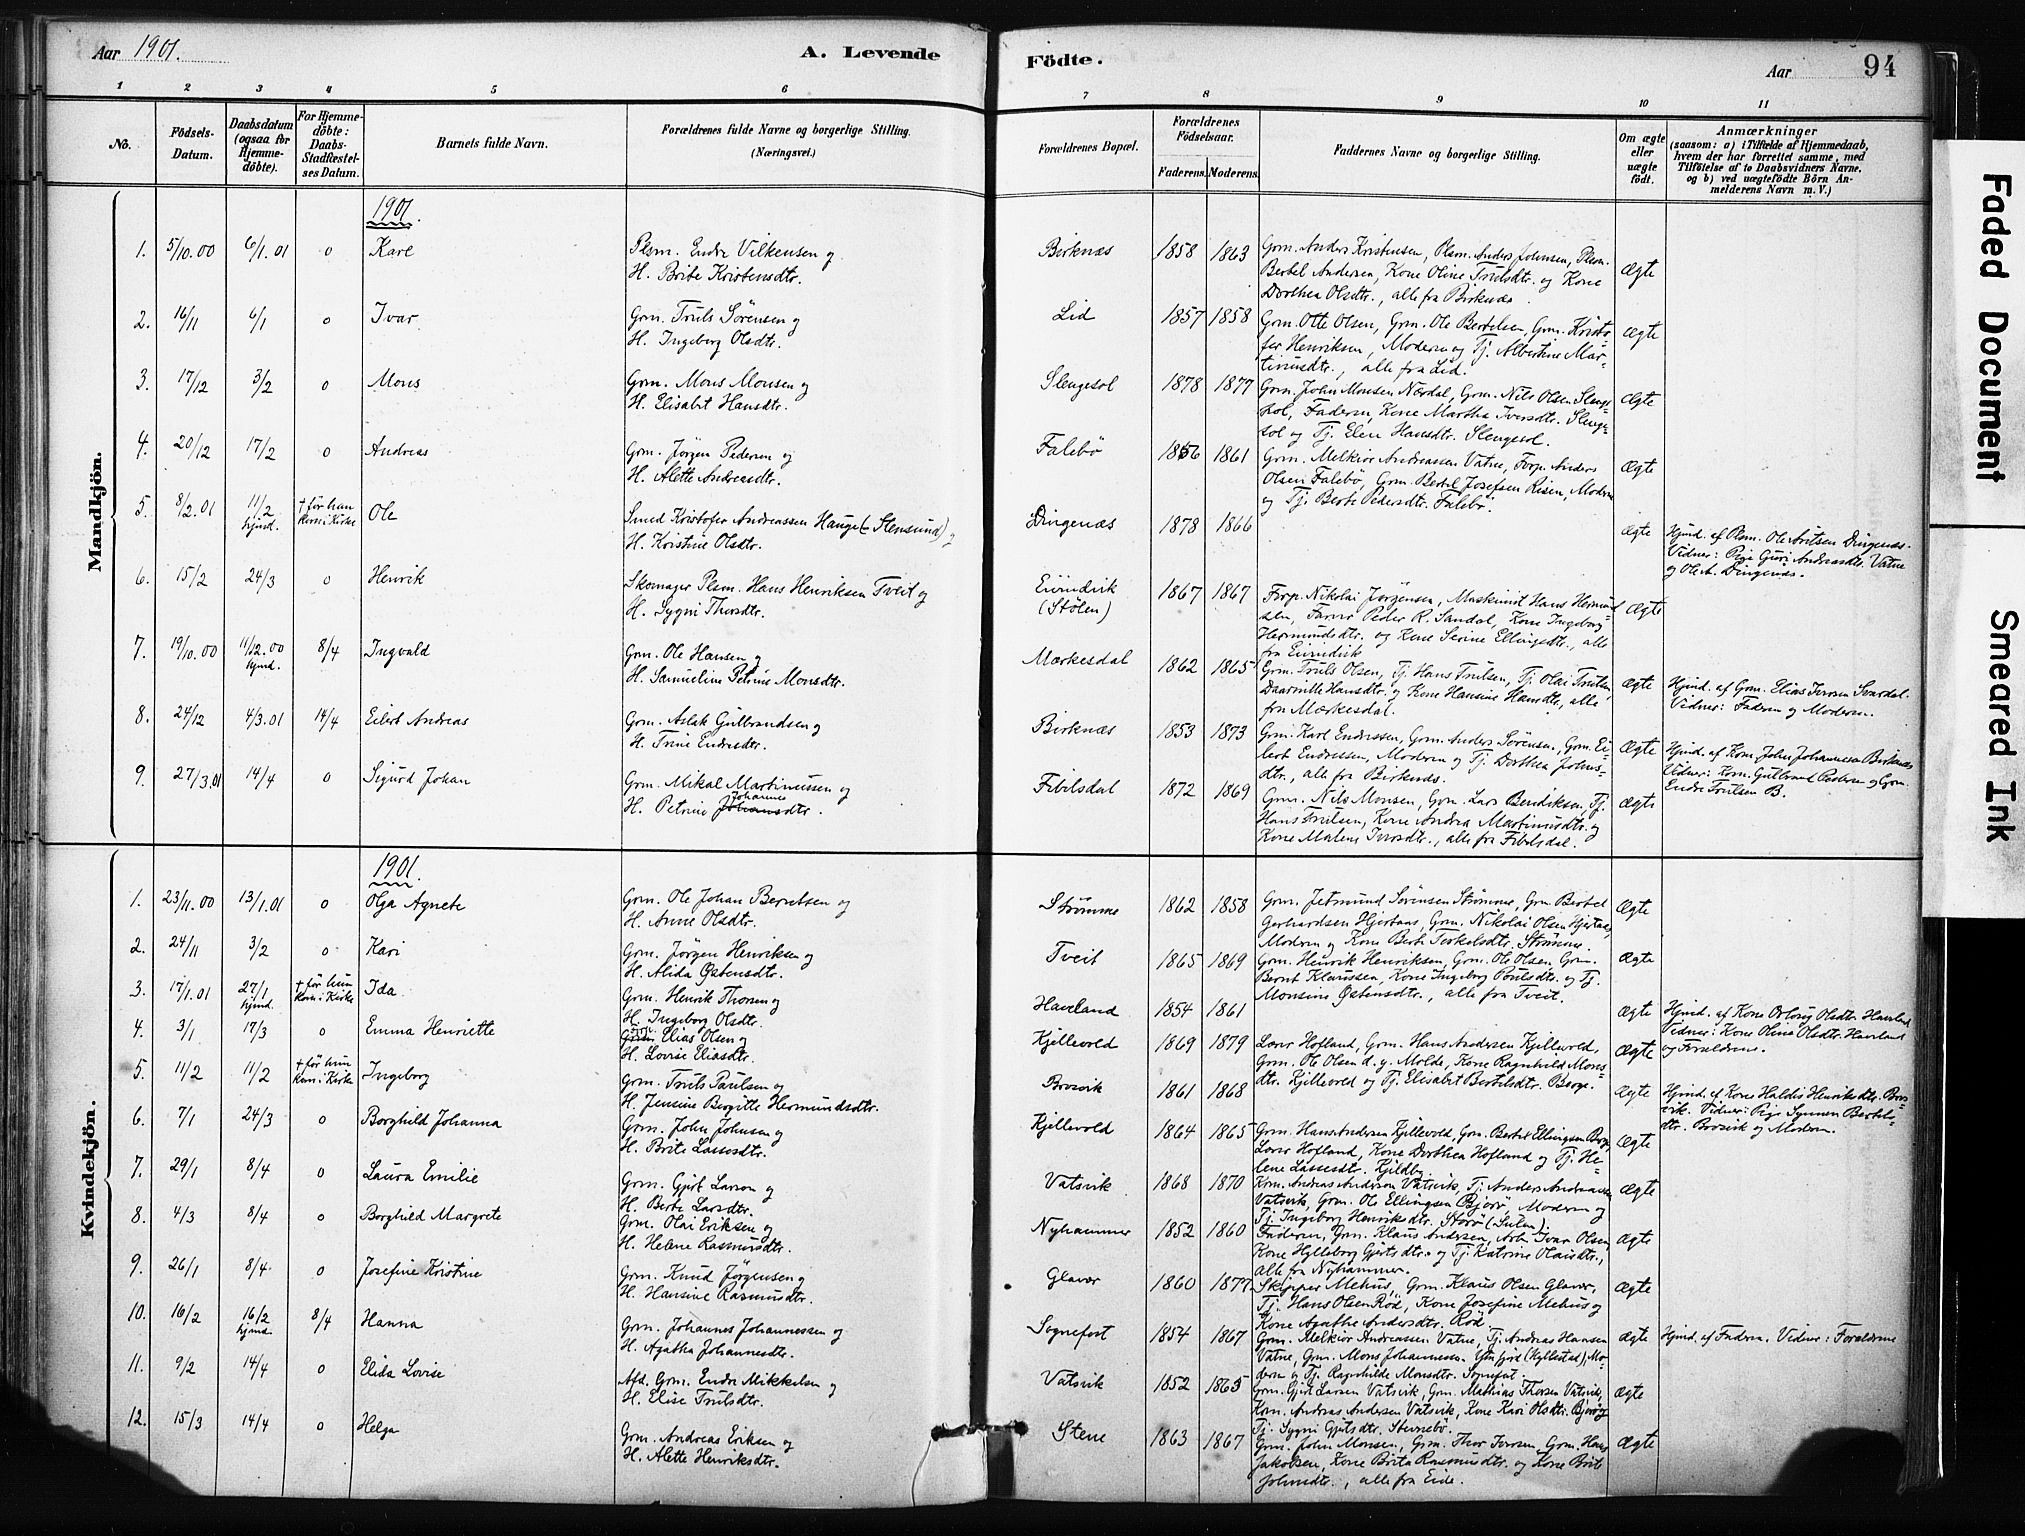 Aar 1901.
A. Levende Födte.
Aar
94
1 2 3 4 5 6 7 8 9 10 11
No.
Födsels-Datum.
Daabsdatum (ogsaa for Hjemme-döbte).
For Hjemme-döbte: Daabs-Stadfæstel-ses Datum.
Barnets fulde Navn.
Forældrenes fulde Navne og borgerlige Stilling. (Næringsvei.)
Forældrenes Bopæl.
Forældrenes Födselsaar.
Faderens. Moderens.
Faddernes Navne og borgerlige Stilling.
Om ægte eller uægte födt.
Anmærkninger
(saasom: a) i Tilfælde af Hjemmedaab, hvem der har forrettet samme, med Tilföielse af to Daabsvidners Navne, og b) ved uægtefödte Börn An-melderens Navn m. V.)
Mandkjön.
1901.
1. 5/10.00 6/1.01 o Karl
Plsm. Endre Vilkensen og
H. Brite Kristensdtr.
Birknæs 1858 1863
Grm. Anders Kristensen, Plsm. Anders Johnsen, Plsm.
Bertel Andersen, Kone Oline Trulsdtr. og Kone
Dorthea Olsdtr., alle fra Birknæs.
Ægte
2. 16/11 6/1 o Ivar
Grm. Truls Sörensen og
H. Ingeborg Olsdtr.
Lid 1857 1858
Grm. Otte Olsen, Grm. Ole Bertelsen, Grm. Kristo-
fer Henriksen, Moderen og Tj. Albertine Mar-
tinusdtr., alle fra Lid.
Ægte
3. 17/12 3/2 o Mons
Grm. Mons Monsen og
H. Elisabet Hansdtr.
Slengesol 1878 1877
Grm. John Monsen Nærdal, Grm. Nils Olsen Slenge-
sol, Faderen, Kone Martha Iversdtr. Slenge-
sol og Tj. Elen Hansdtr. Slengesol.
Ægte
4. 20/12 17/2 o Andreas
Grm. Jörgen Pedersen og
H. Alette Andreasdtr.
Falebö 1856 1861
Grm. Melkior Andreassen Vatne, Forp. Anders
Olsen Falebö, Grm. Bertel Josefsen Risen, Moderen
og Tj. Berte Pedersdtr. Falebö.
Ægte
5. 8/2.01 11/2 hjmd. † før han kom i Kirke Ole
Smed Kristofer Andreassen Hauge (Stensund) og
H. Kristine Olsdtr.
Dingenæs 1878 1866
ægte
Hjmd. af Plsm. Ole Antsen Dingenæs.
Vidner: Pige Guri Andreasdtr. Vatne
og Ole A. Dingenæs.
6. 15/2 24/3 o Henrik
Skomager Plsm. Hans Henriksen Tveit og
H. Sygni Thorsdtr.
Eivindvik
(Stölen) 1867 1867
Forp. Nikolai Jörgensen, Maskinist Hans Hermund-
sen, Farver Peder R. Sandal, Kone Ingeborg
Hermundsdtr. og Kone Serine Ellingsdtr., alle
fra Eivindvik
Ægte
7. 19/10.00 11/12.00 hjmd. 8/4 Ingvald
Grm. Ole Hansen og
H. Samueline Petrine Monsdtr.
Mærkesdal 1862 1865
Grm. Truls Olsen, Tj. Hans Trulsen, Tj. Olai Trulsen,
Hansdtr. og Kone Hansine Hansdtr., alle
fra Mærkesdal.
Ægte
Hjmd. af Grm. Elias Iversen Svardal.
Vidner: Fadren og Moderen.
8. 24/12 4/3.01 14/4 Eilert Andreas
Grm. Aslak Gulbrandsen og
H. Trine Endresdtr.
Birknæs 1853 1873
Grm. Karl Endresen, Grm. Anders Sørensen, Grm. Ei-
lert Endresen, Moderen og Tj. Dorthea Johns-
dtr., alle fra Birknæs.
Ægte
Hjmd. af Krm. John Johannesen Birknæs
Vidner: Krm. Gulbrand Pedersen og Grm.
Endre Trulsen B.
9. 27/3.01 14/4 o Sigurd Johan
Grm. Mikal Martinussen og
H. Petrine Johannesdtr.
Fibilsdal 1872 1869
Grm. Nils Monsen, Grm. Lars Bendiksen, Tj.
Hans Trulsen, Kone Andrea Martinusdtr. og
Kone Malene Iversdtr., alle fra Fibelsdal.
Ægte
Kvindekjön.
1901.
1. 23/11.00 13/1.01 o Olga Agnete
Grm. Ole Johan Berntsen og
H. Anne Olsdtr.
Strömme 1862 1858
Grm. Jetmund Sörensen Strömme, Grm Bertel
Gerhardsen Hjertaas, Grm. Nikolai Olsen Hjertaas,
Moderen og Kone Berte Terkelsdtr. Strömme.
Ægte
2. 24/11 3/2 o Kari
Grm. Jørgen Henriksen og
H. Alida Østensdtr.
Tveit 1865 1869
Grm. Henrik Henriksen, Grm. Ole Olsen, Grm.
Bernt Klaussen, Kone Ingeborg Poulsdtr. og Tj.
Monsine Østensdtr., alle fra Tveit.
Ægte
3. 17/1.01 27/1 hjmd. † før hun kom i Kirke Ida
Grm. Henrik Thorsen og
H. Ingeborg Olsdtr.
Haveland 1854 1861
Ægte
Hjmd. af Kone Olsdtr. Haveland
Vidner: Kone Oline Olsdtr. Haveland
og Forældrene.
4. 3/1 17/3 o Emma Henriette
Elias Olsen og
H. Lovise Eliasdtr.
Kjellevold 1869 1879
Lærer Hofland, Grm. Hans Andersen Kjellevold,
Grm. Ole Olsen d. y. Molde, Kone Ragnhild Mons-
dtr. Kjellevold og Tj. Elisabet Bertelsdtr. Berge.
Ægte
5. 11/2 11/2 † før hun kom i Kirke Ingeborg
Grm. Truls Paulsen og
H. Jensine Bergitte Hermundsdtr.
Brosvik 1861 1868
Ægte
Hjmd. af Kone Haldis Henriksdtr. Bros-
vik. Vidner: Pige Synneva Bertels-
dtr. Brosvik og Moderen.
6. 7/1 24/3 o Borghild Johanna
Grm. John Johnsen og
H. Brite Lassesdtr.
Kjellevold 1864 1865
Grm. Hans Andersen Kjellevold, Grm. Bertel Ellingsen Berge,
Lærer Hofland, Kone Dorthea Hofland og Tj. He-
lene Lassesdtr. Kjeldby.
Ægte
7. 29/1 8/4 o Laura Emilie
Grm. Gjert Larsen og
H. Berte Larsdtr.
Vatsvik 1868 1870
Krm. Andreas Andersen Vatsvik, Tj. Anders Andreassen
Vatsvik, Grm. Ole Ellingsen Bjorö, Moderen og
Tj. Ingeborg Henriksdtr. Storö (Sulen).
Ægte
8. 4/3 8/4 o Borghild Margrete
Grm. Olai Eriksen og
H. Helene Rasmusdtr.
Nyhammer 1852 1860
Faderen, Grm. Klaus Andersen, Arb. Ivar Olsen,
Kone Hylleborg Gjertsdtr. og Tj. Katrine Olaisdtr.,
alle fra Nyhammer.
Ægte
9. 26/1 8/4 o Josefine Kristine
Grm. Knud Jørgensen og
H. Hansine Rasmusdtr.
Glavær 1860 1877
Skipper Mehus, Grm. Klaus Olsen Glavær,
Tj. Hans Olsen Röd, Kone Josefine Mehus og
Kone Agathe Andersdtr. Röd.
Ægte
10. 16/2 16/2 hjmd. 8/4 Hanna
Grm. Johannes Johannessen og
H. Agatha Johannesdtr.
Sognefest 1854 1867
Grm. Melkior Andreassen Vatne, Tj. Andreas Hansen
Vatne, Grm. Mons Johannessen (Hyllestad), Mo-
deren og Tj. Ragnhilde Monsdtr. Sognefest.
Ægte
Hjmd. af Faderen. Vidner: Forældrene
11. 9/2 14/4 o Elida Lovise
Afd. Grm. Endre Mikkelsen og
H. Elise Trulsdtr.
Vatsvik 1852 1865
Grm. Gjert Larsen Vatsvik, Grm. Mathias Thorsen Vatsvik,
Krm. Andreas Andersen Vatsvik, Kone Kari Olsdtr. Bjorö og
Tj. Sygni Gjertsdtr. Stennebö.
Ægte
12. 15/3 14/4 o Helga
Grm. Andreas Eriksen og
H. Alette Henriksdtr.
Stene 1863 1867
Grm. John Monsen, Grm. Thor Iversen, Grm. Hans
Jakobsen, Kone Brita Rasmusdtr. og Kone Brite
Johnsdtr., alle fra Eide.
Ægte
Faded Document
Smeared Ink